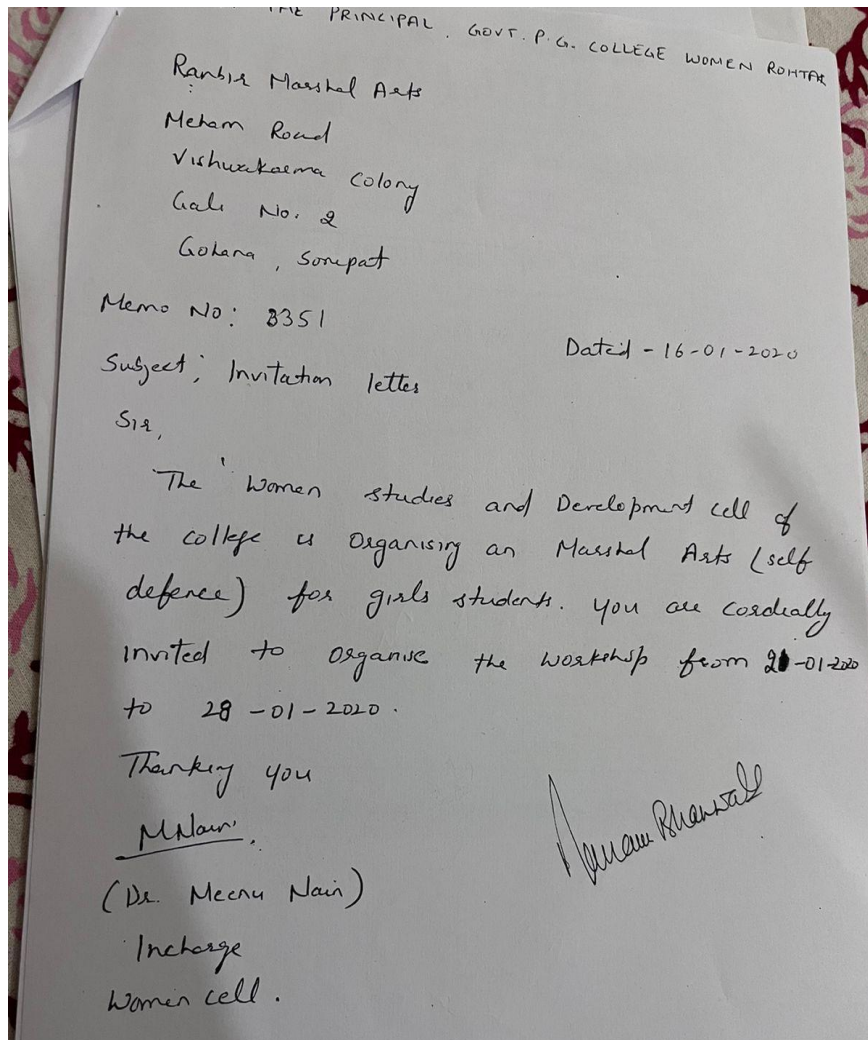 THE PRINCIPAL. GOVT. P.G. COLLEGE WOMEN ROHTAK
Ranbir Marshal Arts
Meham Road
Vishwakarma Colony
Gali No. 2
Gohana, Sonepat
Memo No: 3351
Dated - 16-01-2020
Subject; Invitation letter
Sir,
The Women studies and Development cell of
the college is Organising an Marshal Arts (self
defence) for girls students. you are cordially
invited to organise the workshop from 21-01-2020
to 28-01-2020.
Thanking you
MNain.
(Dr. Meenu Nain)
Incharge
Women cell.